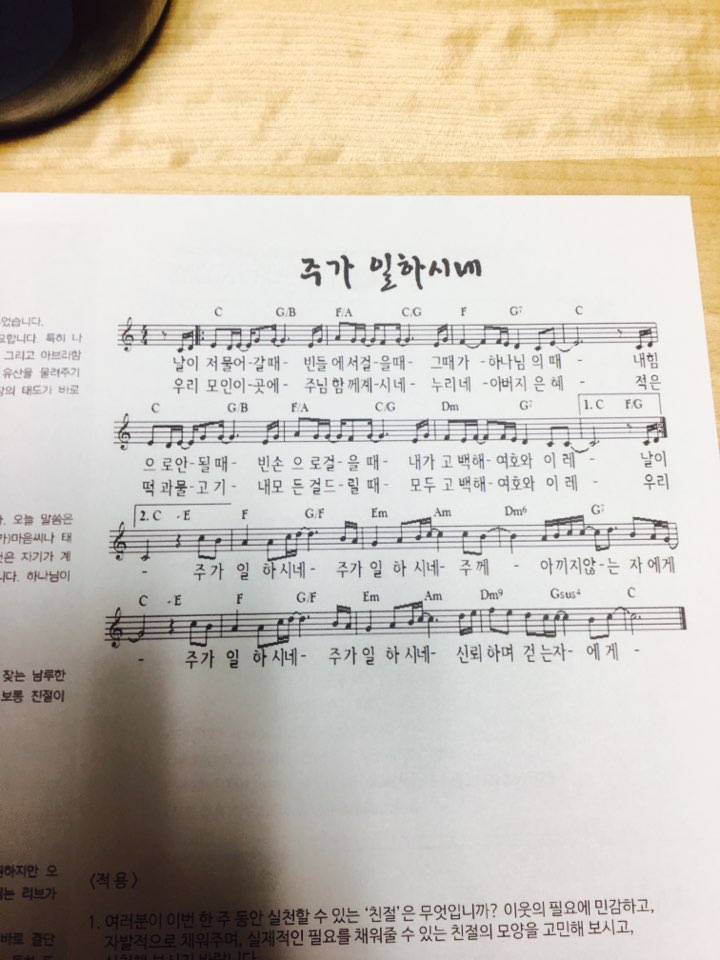 주가 일하시네
C G/B F/A C/G F G7 C
날이 저물어-갈때- 빈들에서걸을때- 그때가-하나님의때- 내힘
우리 모인이곳에- 주님함께계시네- 누리네-아버지은혜- 적은
C G/B F/A C/G Dm G7 1. C F/G
으로안-될때- 빈손으로걸-을때- 내가고백해-여호와이레- 날이
떡과물-고기- 내모든걸드-릴때- 모두고백해-여호와이레- 우리
2. C -E F G/F Em Am Dm6 G7
- 주가 일 하시네- 주가일 하시네- 주께 - 아끼지않-는 자에게
C -E F G/F Em Am Dm9 Gsus4 C
- 주가 일 하시네- 주가일 하시네- 신뢰하며 걷는자- 에게-
었습니다.
요합니다. 특히 나
그리고 아브라함
유산을 물려주기
장의 태도가 바로
오늘 말씀은
가)마음씨나 태
것은 자기가 계
니다. 하나님이
찾는 남루한
보통 친절이
원하지만 으
는 리브가
바로 결단
〈적용〉
1. 여러분이 이번 한 주 동안 실천할 수 있는 ‘친절’은 무엇입니까? 이웃의 필요에 민감하고,
자발적으로 채워주며, 실제적인 필요를 채워줄 수 있는 친절의 모양을 고민해 보시고,